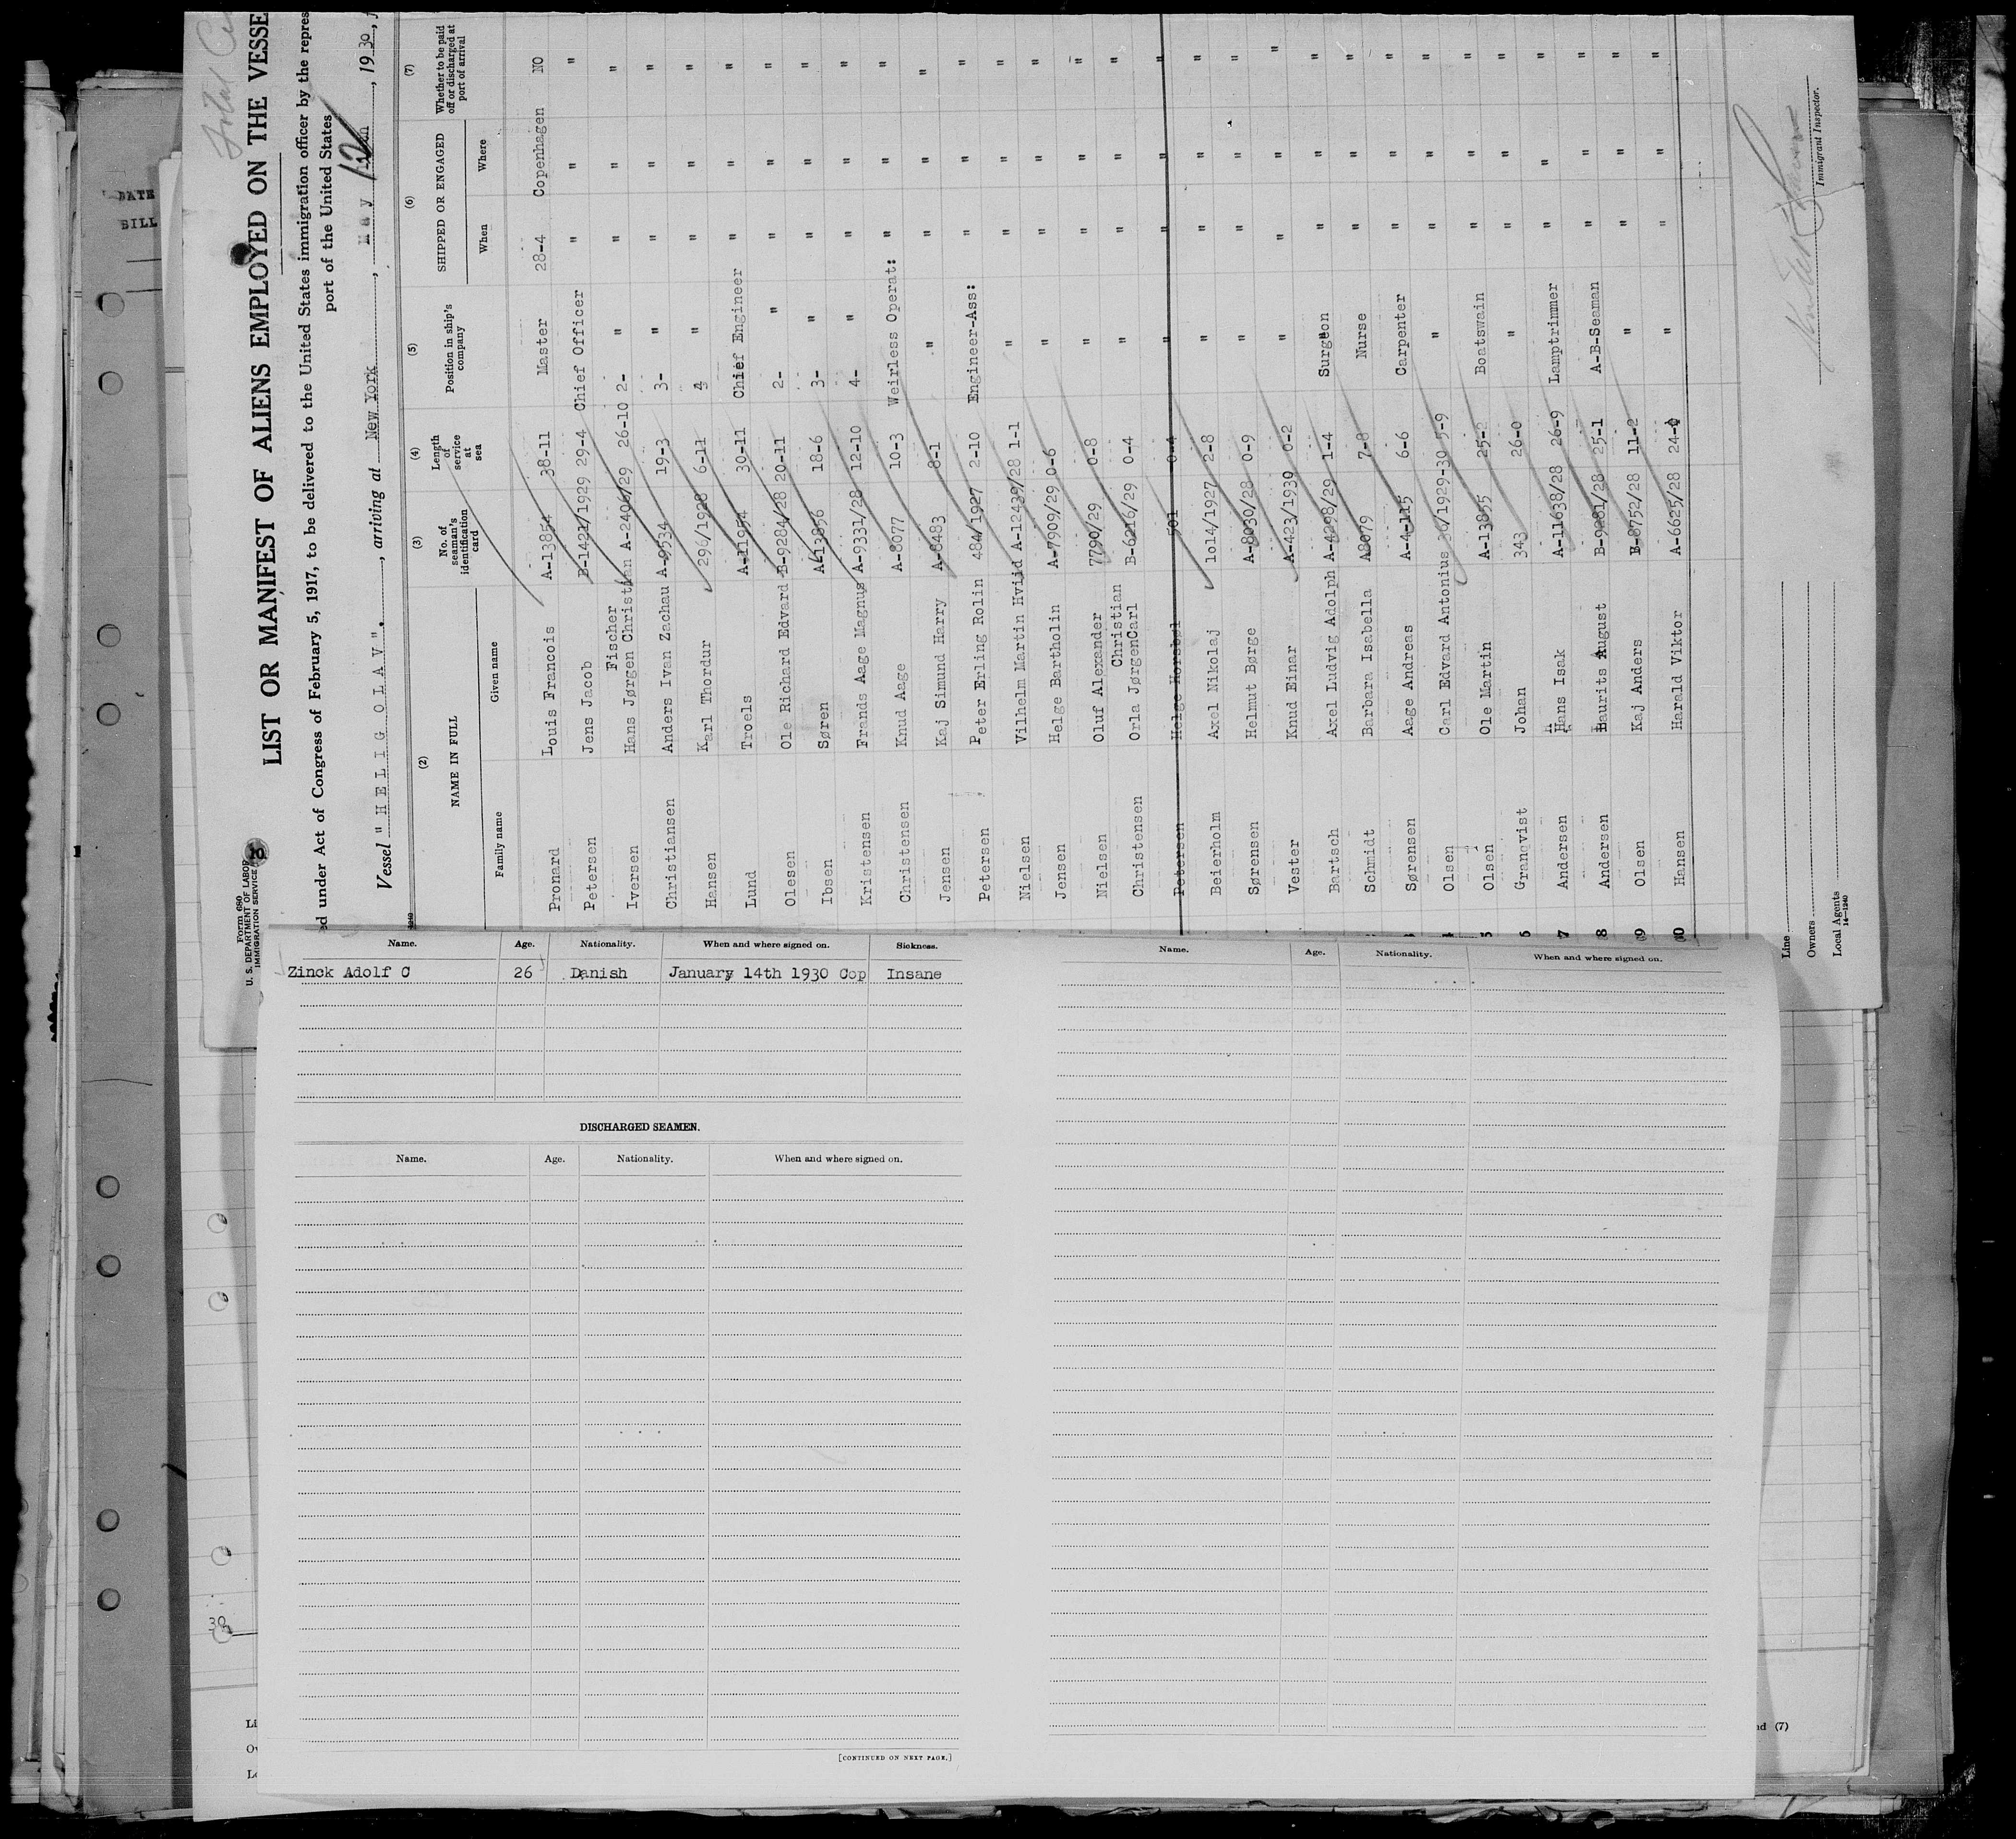 Form 680
U. S. DEPARTMENT OF LABOR
IMMIGRATION SERVICE
LIST OR MANIFEST OF ALIENS EMPLOYED ON THE VESSE
ed under Act of Congress of February 5, 1917, to be delivered to the United States immigration officer by the repres
port of the United States
Vessel "HELIG OLAV"., arriving at New York, May 12, 1930, f
(2) (3) (4) (5) (6) (7)
NAME IN FULL No. of seaman's identification card Length of service at sea Position in ship's company SHIPPED OR ENGAGED Whether to be paid off or discharged at port of arrival
Family name Given name When Where
Pronard Louis Francois A-13854 38-11 Master 28-4 Copenhagen NO
Petersen Jens Jacob B-1421/1929 29-4 Chief Officer " " "
Fischer
Iversen Hans Jørgen Christian A-2406/29 26-10 2- " " " "
Christiansen Anders Ivan Zachau A-9534 19-3 3- " " " "
Hansen Karl Thordur 296/1928 6-11 4 " " " "
Lund Troels A-11954 30-11 Chief Engineer " " "
Olesen Ole Richard Edvard B-9284/28 20-11 2- " " " "
Ibsen Søren A-13856 18-6 3- " " " "
Kristensen Frands Aage Magnus A-9331/28 12-10 4- " " " "
Christensen Knud Aage A-8077 10-3 Weirless Operat: " " "
Jensen Kaj Simund Harry A-8483 8-1 " " " "
Petersen Peter Erling Rolin 484/1927 2-10 Engineer-Ass: " " "
Nielsen Vilhelm Martin Hviid A-12439/28 1-1 " " " "
Jensen Helge Bartholin A-7909/29 0-6 " " " "
Nielsen Oluf Alexander 7790/29 0-8 " " " "
Christian
Christensen Orla JørgenCarl B-6216/29 0-4 " " " "
Petersen Helge Korsbøl 501 0-4 " " " "
Beierholm Axel Nikolaj 1014/1927 2-8 " " " "
Sørensen Helmut Børge A-8030/28 0-9 " " " "
Vester Knud Einar A-423/1930 0-2 " " " "
Bartsch Axel Ludvig Adolph A-4298/29 1-4 Surgeon " " "
Schmidt Barbara Isabella A8079 7-8 Nurse " " "
Sørensen Aage Andreas A-4-115 6-6 Carpenter " " "
Olsen Carl Edvard Antonius 36/1929-30 5-9 " " " "
Olsen Ole Martin A-13855 25-2 Boatswain " " "
Granqvist Johan 343 26-0 " " " "
Andersen Hans Isak A-11638/28 26-9 Lamptrimmer " " "
Andersen Laurits August B-9281/28 25-1 A-B-Seaman " " "
Olsen Kaj Anders B-8752/28 11-2 " " " "
Hansen Harald Viktor A-6625/28 24-0 " " " "
Line
Owners
Local Agents
14-1240
Immigrant Inspector.
DATE
BILL
Name. Age. Nationality. When and where signed on. Sickness.
Zinck Adolf C 26 Danish January 14th 1930 Cop Insane
DISCHARGED SEAMEN.
Name. Age. Nationality. When and where signed on.
[CONTINUED ON NEXT PAGE.]
Name. Age. Nationality. When and where signed on.